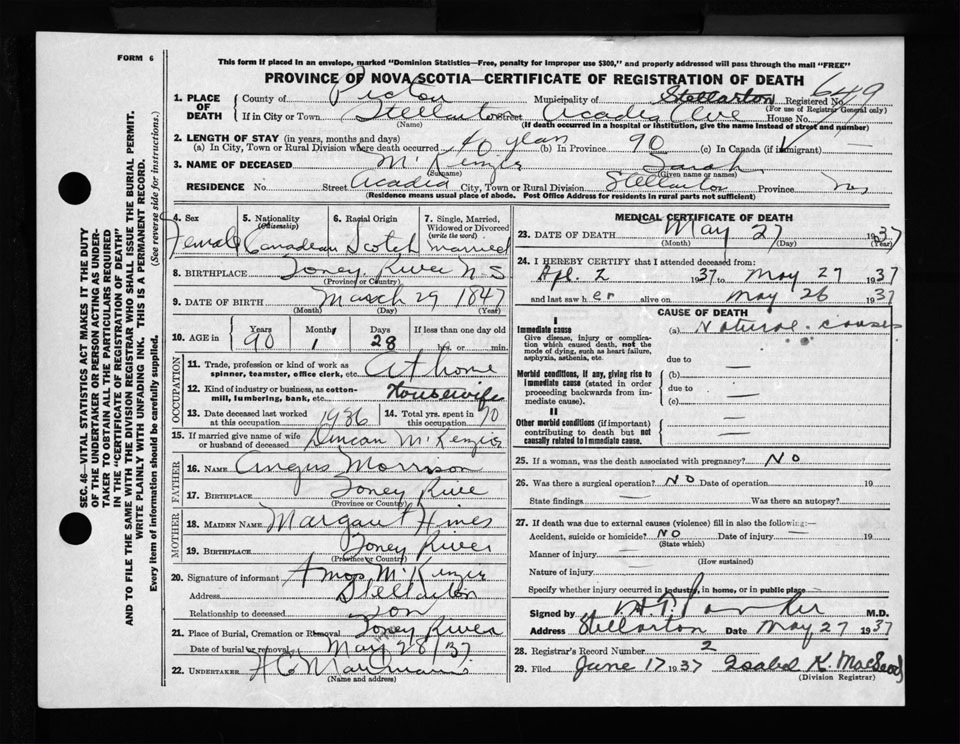 FORM 6
This form if placed in an envelope, marked "Dominion Statistics—Free, penalty for improper use $300," and properly addressed will pass through the mail "FREE"
PROVINCE OF NOVA SCOTIA—CERTIFICATE OF REGISTRATION OF DEATH
1. PLACE OF DEATH County of Pictou Municipality of Stellarton Registered No. 649
(For use of Registrar General only)
If in City or Town Stellarton Street Acadia Ave House No.
(Name) (If death occurred in a hospital or institution, give the name instead of street and number)
2. LENGTH OF STAY (in years, months and days)
(a) In City, Town or Rural Division where death occurred 40 years (b) In Province 90 (c) In Canada (if immigrant) —
3. NAME OF DECEASED McKenzie Sarah
(Surname) (Given name or names)
RESIDENCE No. Street Acadia City, Town or Rural Division Stellarton Province N.S.
(Residence means usual place of abode. Post Office Address for residents in rural parts not sufficient)
4. Sex Female
5. Nationality (Citizenship) Canadian
6. Racial Origin Scotch
7. Single, Married, Widowed or Divorced (write the word) Married
8. BIRTHPLACE Toney River N-S
(Province or Country)
9. DATE OF BIRTH March 29 1847
(Month) (Day) (Year)
10. AGE in Years 90 Months 1 Days 28 If less than one day old hrs. or min.
OCCUPATION
11. Trade, profession or kind of work as spinner, teamster, office clerk, etc. At home
12. Kind of industry or business, as cotton-mill, lumbering, bank, etc. Housewife
13. Date deceased last worked at this occupation 1936 14. Total yrs. spent in 70
15. If married give name of wife or husband of deceased Duncan McKenzie
FATHER
16. NAME Angus Morrison
17. BIRTHPLACE Toney River
(Province or Country)
MOTHER
18. MAIDEN NAME Margaret Hines
19. BIRTHPLACE Toney River
(Province or Country)
20. Signature of informant Amos McKenzie
Address Stellarton
Relationship to deceased son
21. Place of Burial, Cremation or Removal Toney River
Date of burial or removal May 28/37
22. UNDERTAKER
(Name and address)
MEDICAL CERTIFICATE OF DEATH
23. DATE OF DEATH May 27 1937
(Month) (Day) (Year)
24. I HEREBY CERTIFY that I attended deceased from:
Apl. 2 1937 to May 27 1937
and last saw her alive on May 26 1937
CAUSE OF DEATH
I
Immediate cause (a) Natural causes
Give disease, injury or complication which caused death, not the mode of dying, such as heart failure, asphyxia, asthenia, etc.
due to —
Morbid conditions, if any, giving rise to immediate cause (stated in order proceeding backwards from immediate cause).
(b) —
due to —
(c) —
II
Other morbid conditions (if important) contributing to death but not causally related to immediate cause.
25. If a woman, was the death associated with pregnancy? NO
26. Was there a surgical operation? NO Date of operation 19
State findings — Was there an autopsy?
27. If death was due to external causes (violence) fill in also the following:—
Accident, suicide or homicide? NO Date of injury — 19
(State which)
Manner of injury —
(How sustained)
Nature of injury
Specify whether injury occurred in industry, in home, or in public place
Signed by M.D.
Address Stellarton Date May 27 1937
28. Registrar's Record Number 2
29. Filed June 17 1937 Isabel K. MacLeod
(Division Registrar)
SEC. 46—VITAL STATISTICS ACT MAKES IT THE DUTY
OF THE UNDERTAKER OR PERSON ACTING AS UNDER-
TAKER TO OBTAIN ALL THE PARTICULARS REQUIRED
IN THE "CERTIFICATE OF REGISTRATION OF DEATH"
AND TO FILE THE SAME WITH THE DIVISION REGISTRAR WHO SHALL ISSUE THE BURIAL PERMIT.
WRITE PLAINLY WITH UNFADING INK. THIS IS A PERMANENT RECORD.
Every item of information should be carefully supplied. (See reverse side for instructions.)